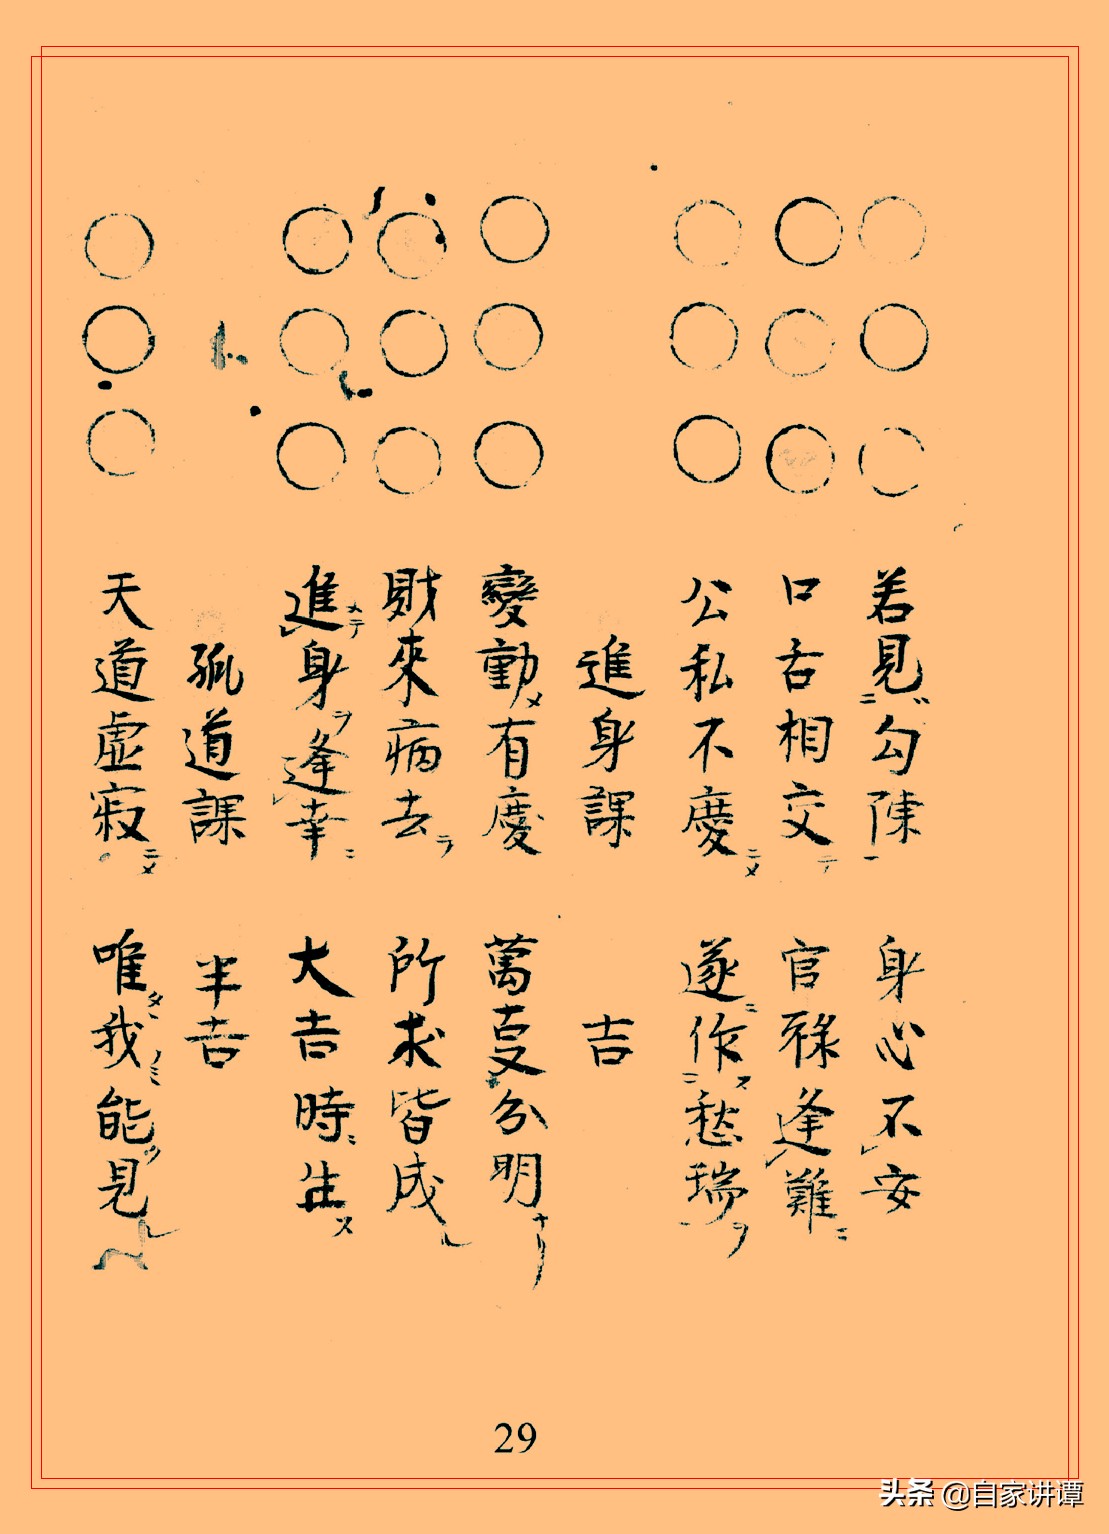 若見勾陳 身心不安
口舌相交 官祿逢難
公私不慶 遂作愁瑞
進身課 吉
變動有慶 萬事分明
財來病去 所求皆成
進身逢幸 大吉時生
孤道課 半吉
天道虚寂 唯我能見
29
头条 @自家讲谭